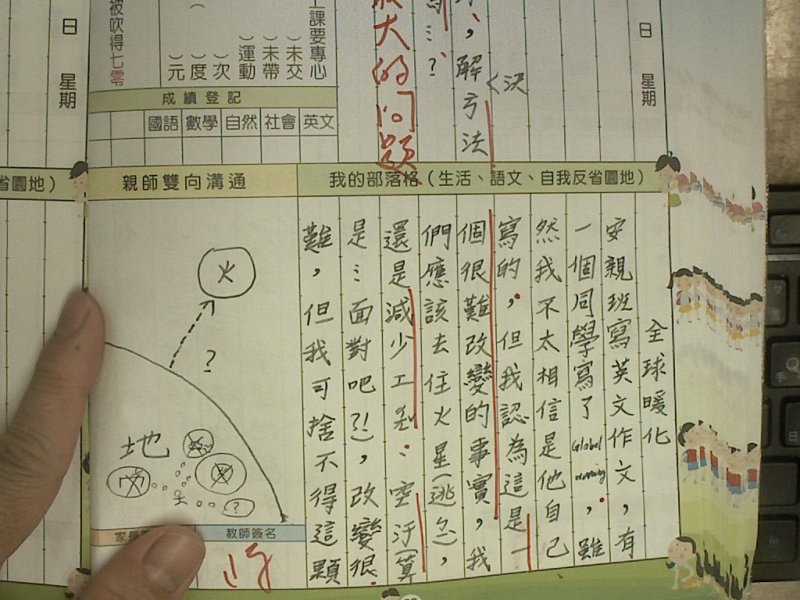 日 星期
解方法
<決
⋮?
大的問題
上課要專心
(未交
(未帶
(運動
)次
)度
)元
被吹得七零
成績登記
國語 數學 自然 社會 英文
日 星期
我的部落格(生活、語文、自我反省園地)
親師雙向溝通
省園地)
全球暖化
安親班寫英文作文,有
一個同學寫了Global warming,雖
然我不太相信是他自己
寫的,但我認為這是一
個很難改變的事實,我
們應該去住火星(逃亡),
還是減少工
空汙(算
是⋮面對吧?!),改變很
難,但我可捨不得這顆
火
?
地
?
教師簽名